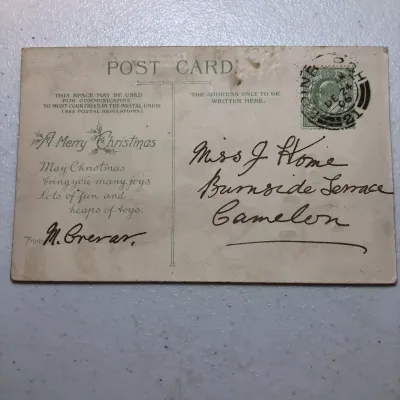 POST CARD
THIS SPACE MAY BE USED
FOR COMMUNICATIONS
TO MOST COUNTRIES IN THE POSTAL UNION
(SEE POSTAL REGULATIONS)
THE ADDRESS ONLY TO BE
WRITTEN HERE.
A Merry Christmas
May Christmas
bring you many joys
Lots of fun and
heaps of toys.
From M.
Miss J Home
Burnside Terrace
Camelon
DE 24
21